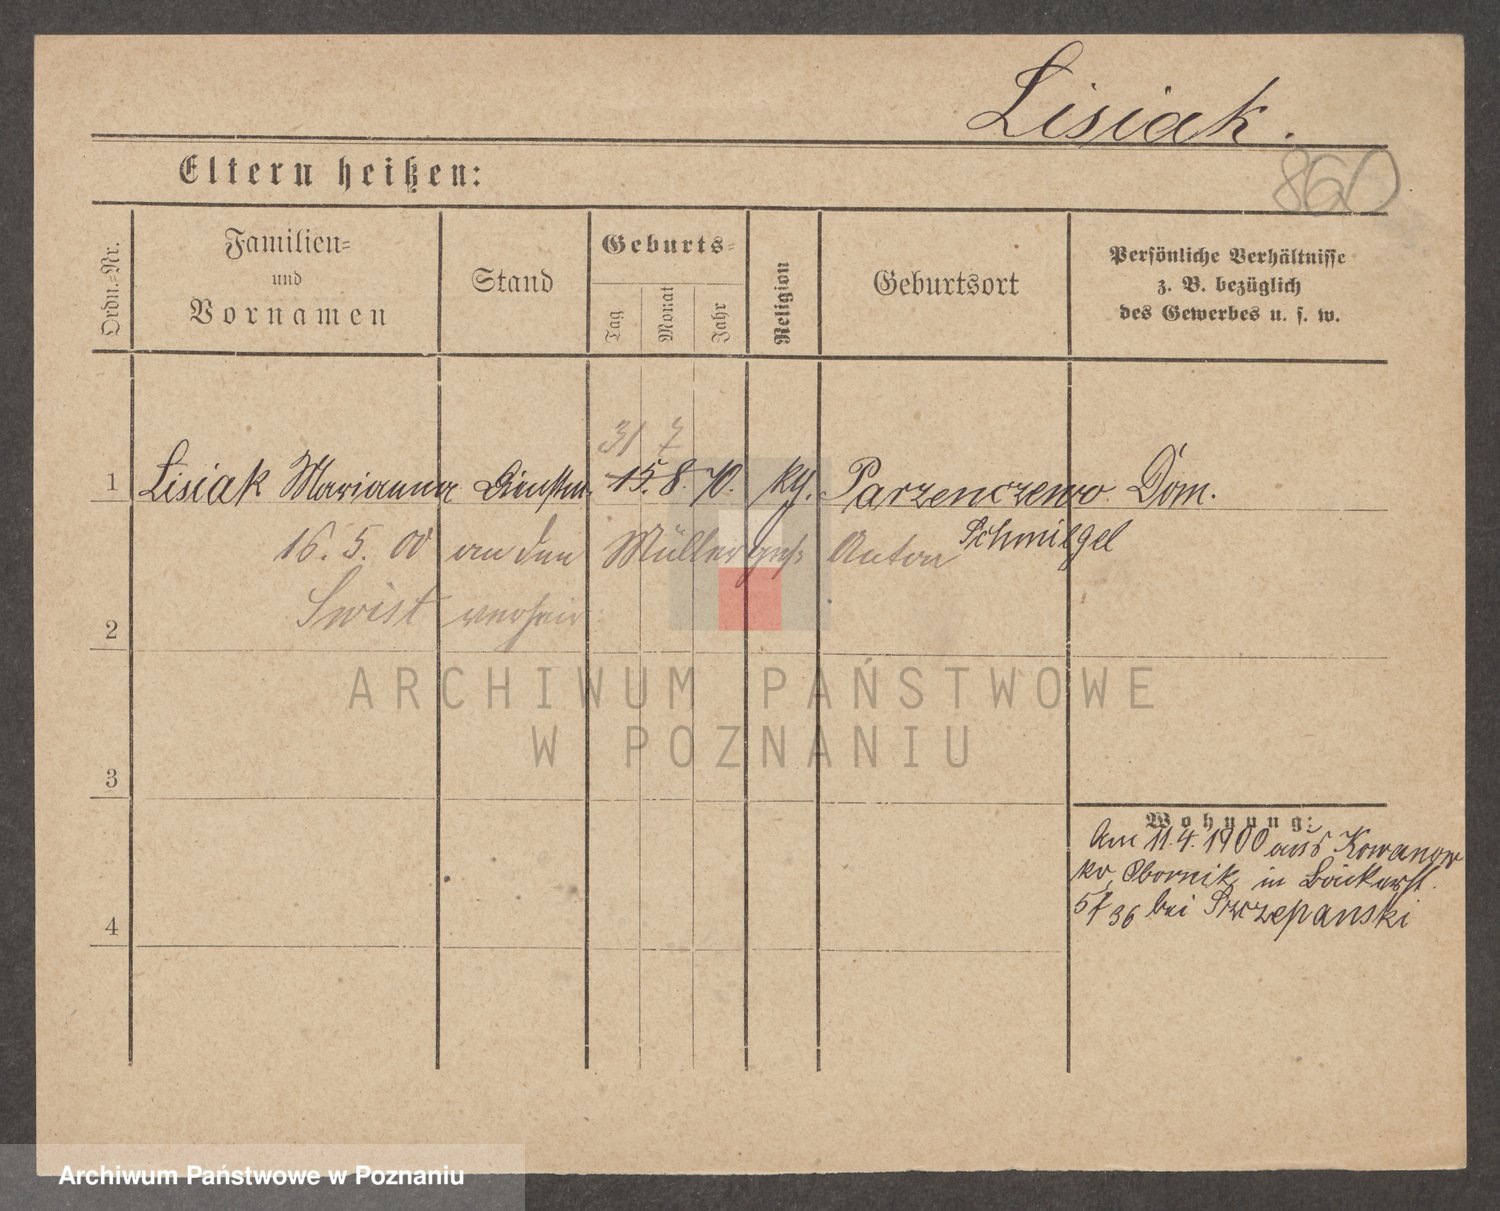 Lisiak.
860
Eltern heißen:
Ordn.-Nr.
Familien-
und
Vornamen
Stand
Geburts-
Tag
Monat
Jahr
Religion
Geburtsort
Persönliche Verhältnisse
z. B. bezüglich
des Gewerbes u. s. w.
31 7
1 Lisiak Marianna Dienstm. 15. 8. 70. kg. Parzenczewo Dom.
Schmiegel
16. 5. 00 an den Müllerges. Anton
Swist verheir.
2
ARCHIWUM PAŃSTWOWE
W POZNANIU
3
Wohnung:
Am 11.4.1900 aus Kowanow
kr. Obornik in Bäckerst.
36 bei Szczepanski
4
Archiwum Państwowe w Poznaniu